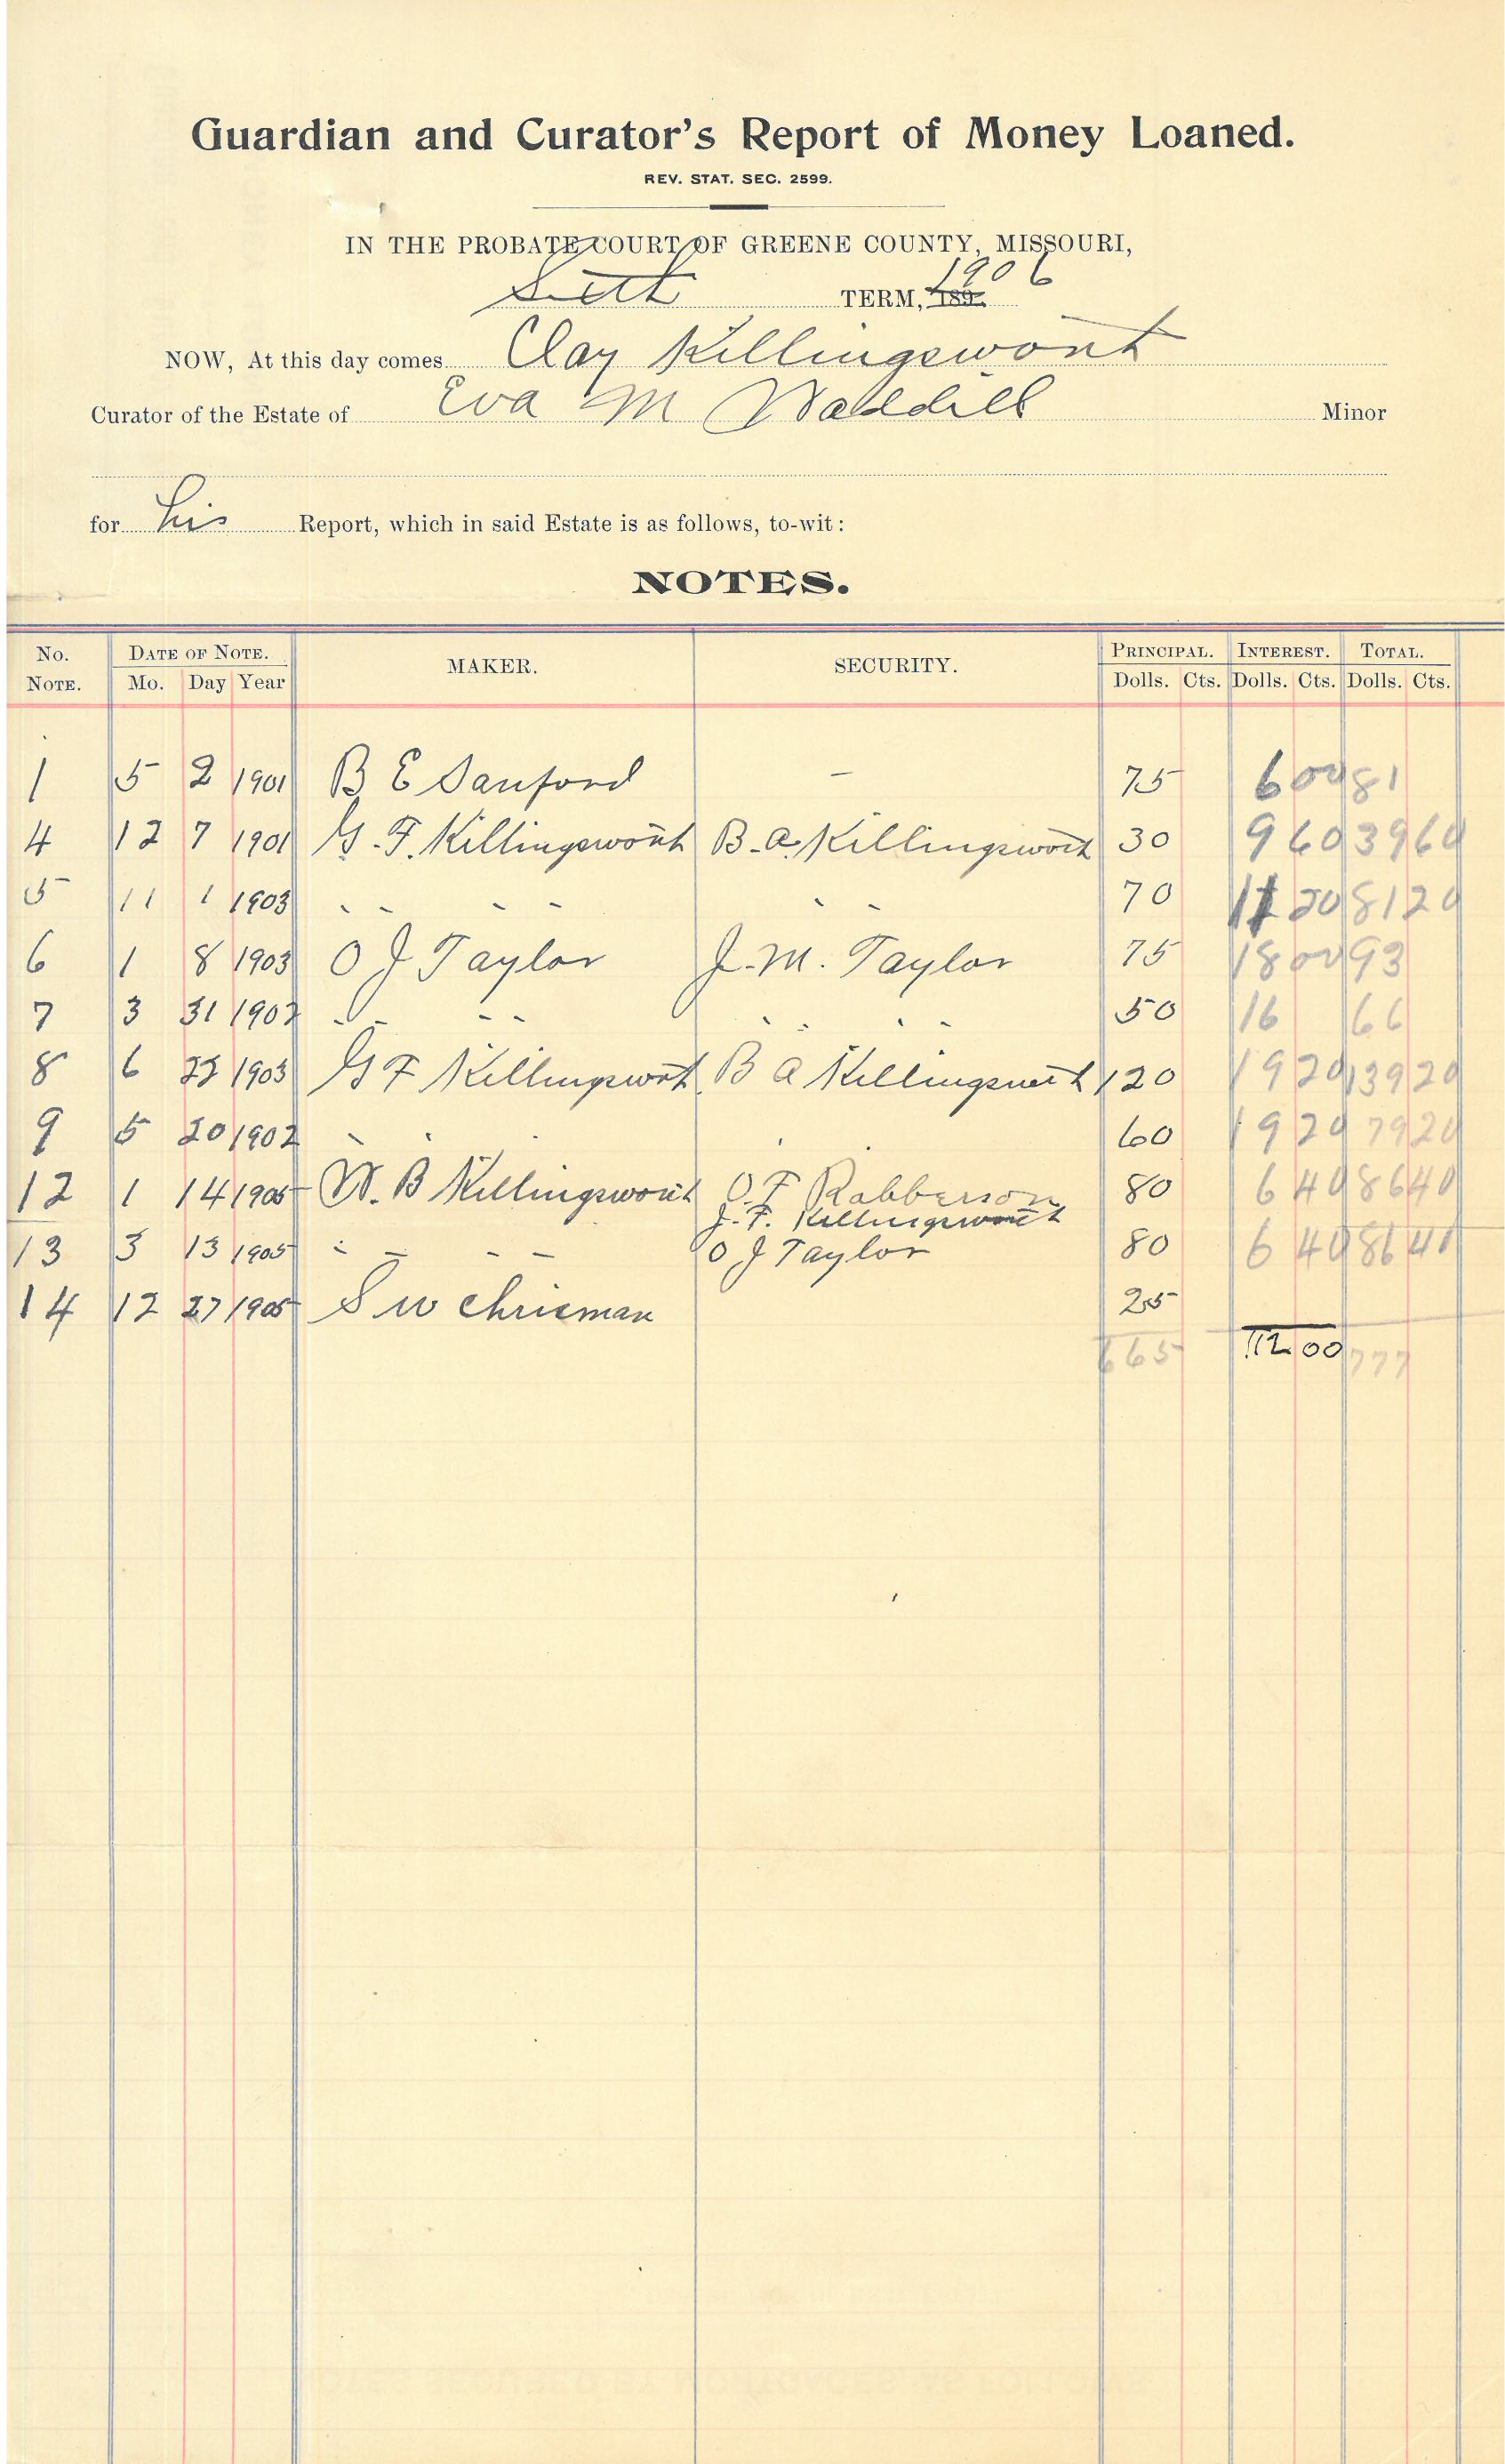 Guardian and Curator's Report of Money Loaned.
REV. STAT. SEC. 2599.
IN THE PROBATE COURT OF GREENE COUNTY, MISSOURI,
TERM, 189 1906
NOW, At this day comes Clay Killingsworth
Curator of the Estate of Eva M Waddill Minor
for his Report, which in said Estate is as follows, to-wit:
NOTES.
No. NOTE. DATE OF NOTE. Mo. Day Year MAKER. SECURITY. PRINCIPAL. Dolls. Cts. INTEREST. Dolls. Cts. TOTAL. Dolls. Cts.
1 5 2 1901 B E Sanford – 75 6 00 81
4 12 7 1901 G. F. Killingsworth B. A. Killingsworth 30 9 60 39 60
5 11 1 1903 " " " " " " 70 11 20 81 20
6 1 8 1903 O J Taylor J. M. Taylor 75 18 00 93
7 3 31 1902 " " " " " " 50 16 66
8 6 22 1903 G F Killingsworth B A Killingsworth 120 19 20 139 20
9 5 20 1902 " " " " 60 19 20 79 20
12 1 14 1905 W. B Killingsworth O. F Robberson 80 6 40 86 40
J. F. Killingsworth
13 3 13 1905 " " " " O J Taylor 80 6 40 86 40
14 12 27 1905 S W Chrisman 25
665 112 00 777